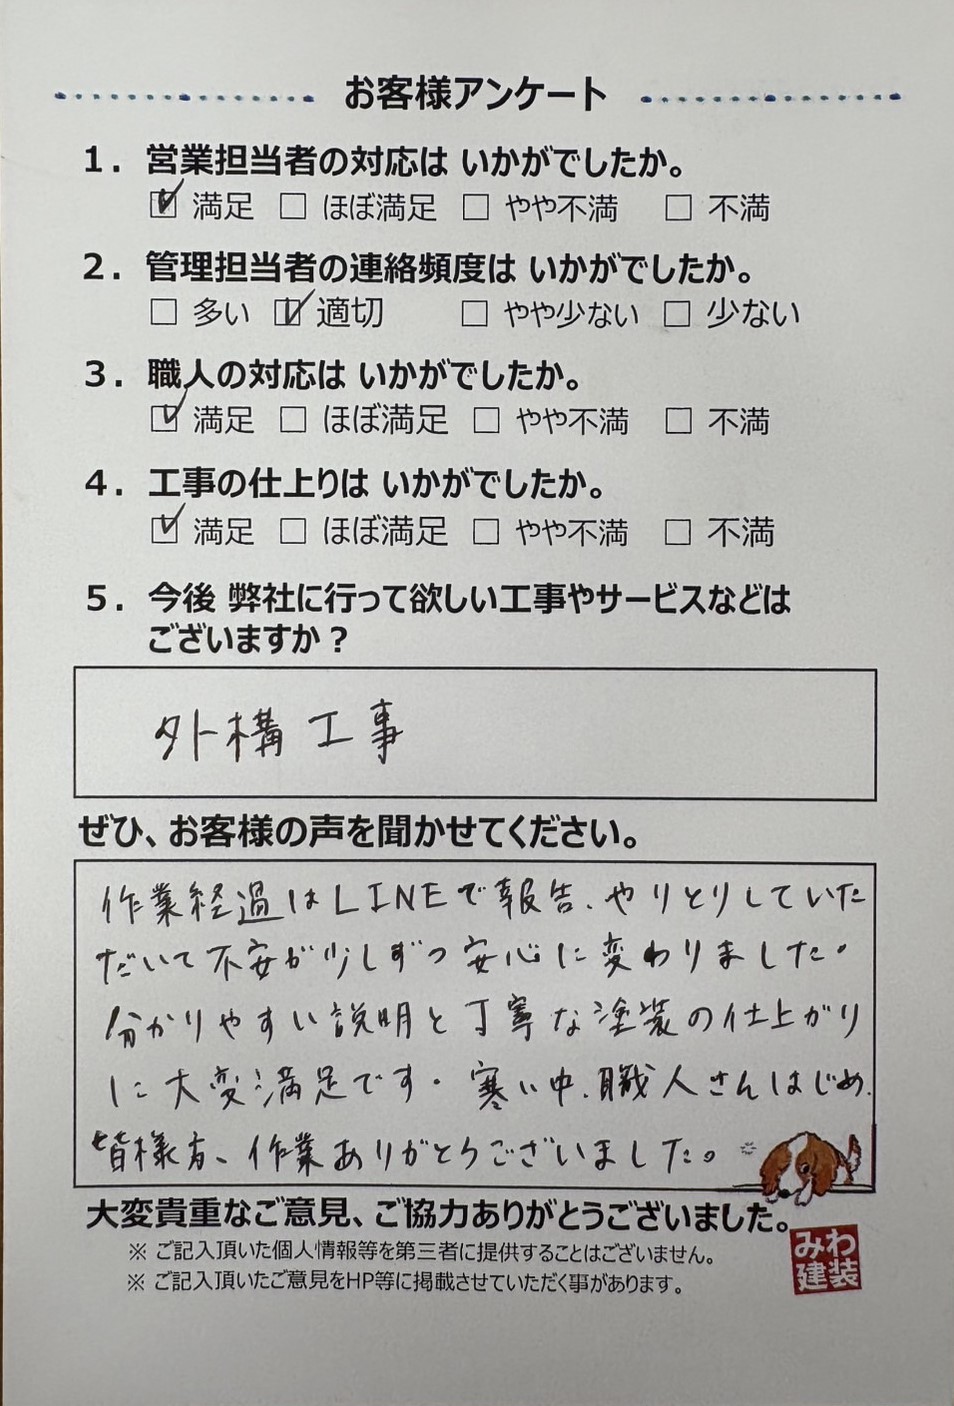 お客様アンケート
1. 営業担当者の対応は いかがでしたか。
☑ 満足 □ ほぼ満足 □ やや不満 □ 不満
2. 管理担当者の連絡頻度は いかがでしたか。
□ 多い ☑ 適切 □ やや少ない □ 少ない
3. 職人の対応は いかがでしたか。
☑ 満足 □ ほぼ満足 □ やや不満 □ 不満
4. 工事の仕上りは いかがでしたか。
☑ 満足 □ ほぼ満足 □ やや不満 □ 不満
5. 今後 弊社に行って欲しい工事やサービスなどは
ございますか?
外構工事
ぜひ、お客様の声を聞かせてください。
作業経過はLINEで報告、やりとりしていた
だいて不安が少しずつ安心に変わりました。
分かりやすい説明と丁寧な塗装の仕上がり
に大変満足です。寒い中、職人さんはじめ、
皆様方、作業ありがとうございました。
大変貴重なご意見、ご協力ありがとうございました。
※ ご記入頂いた個人情報等を第三者に提供することはございません。
※ ご記入頂いたご意見をHP等に掲載させていただく事があります。
みわ
建装